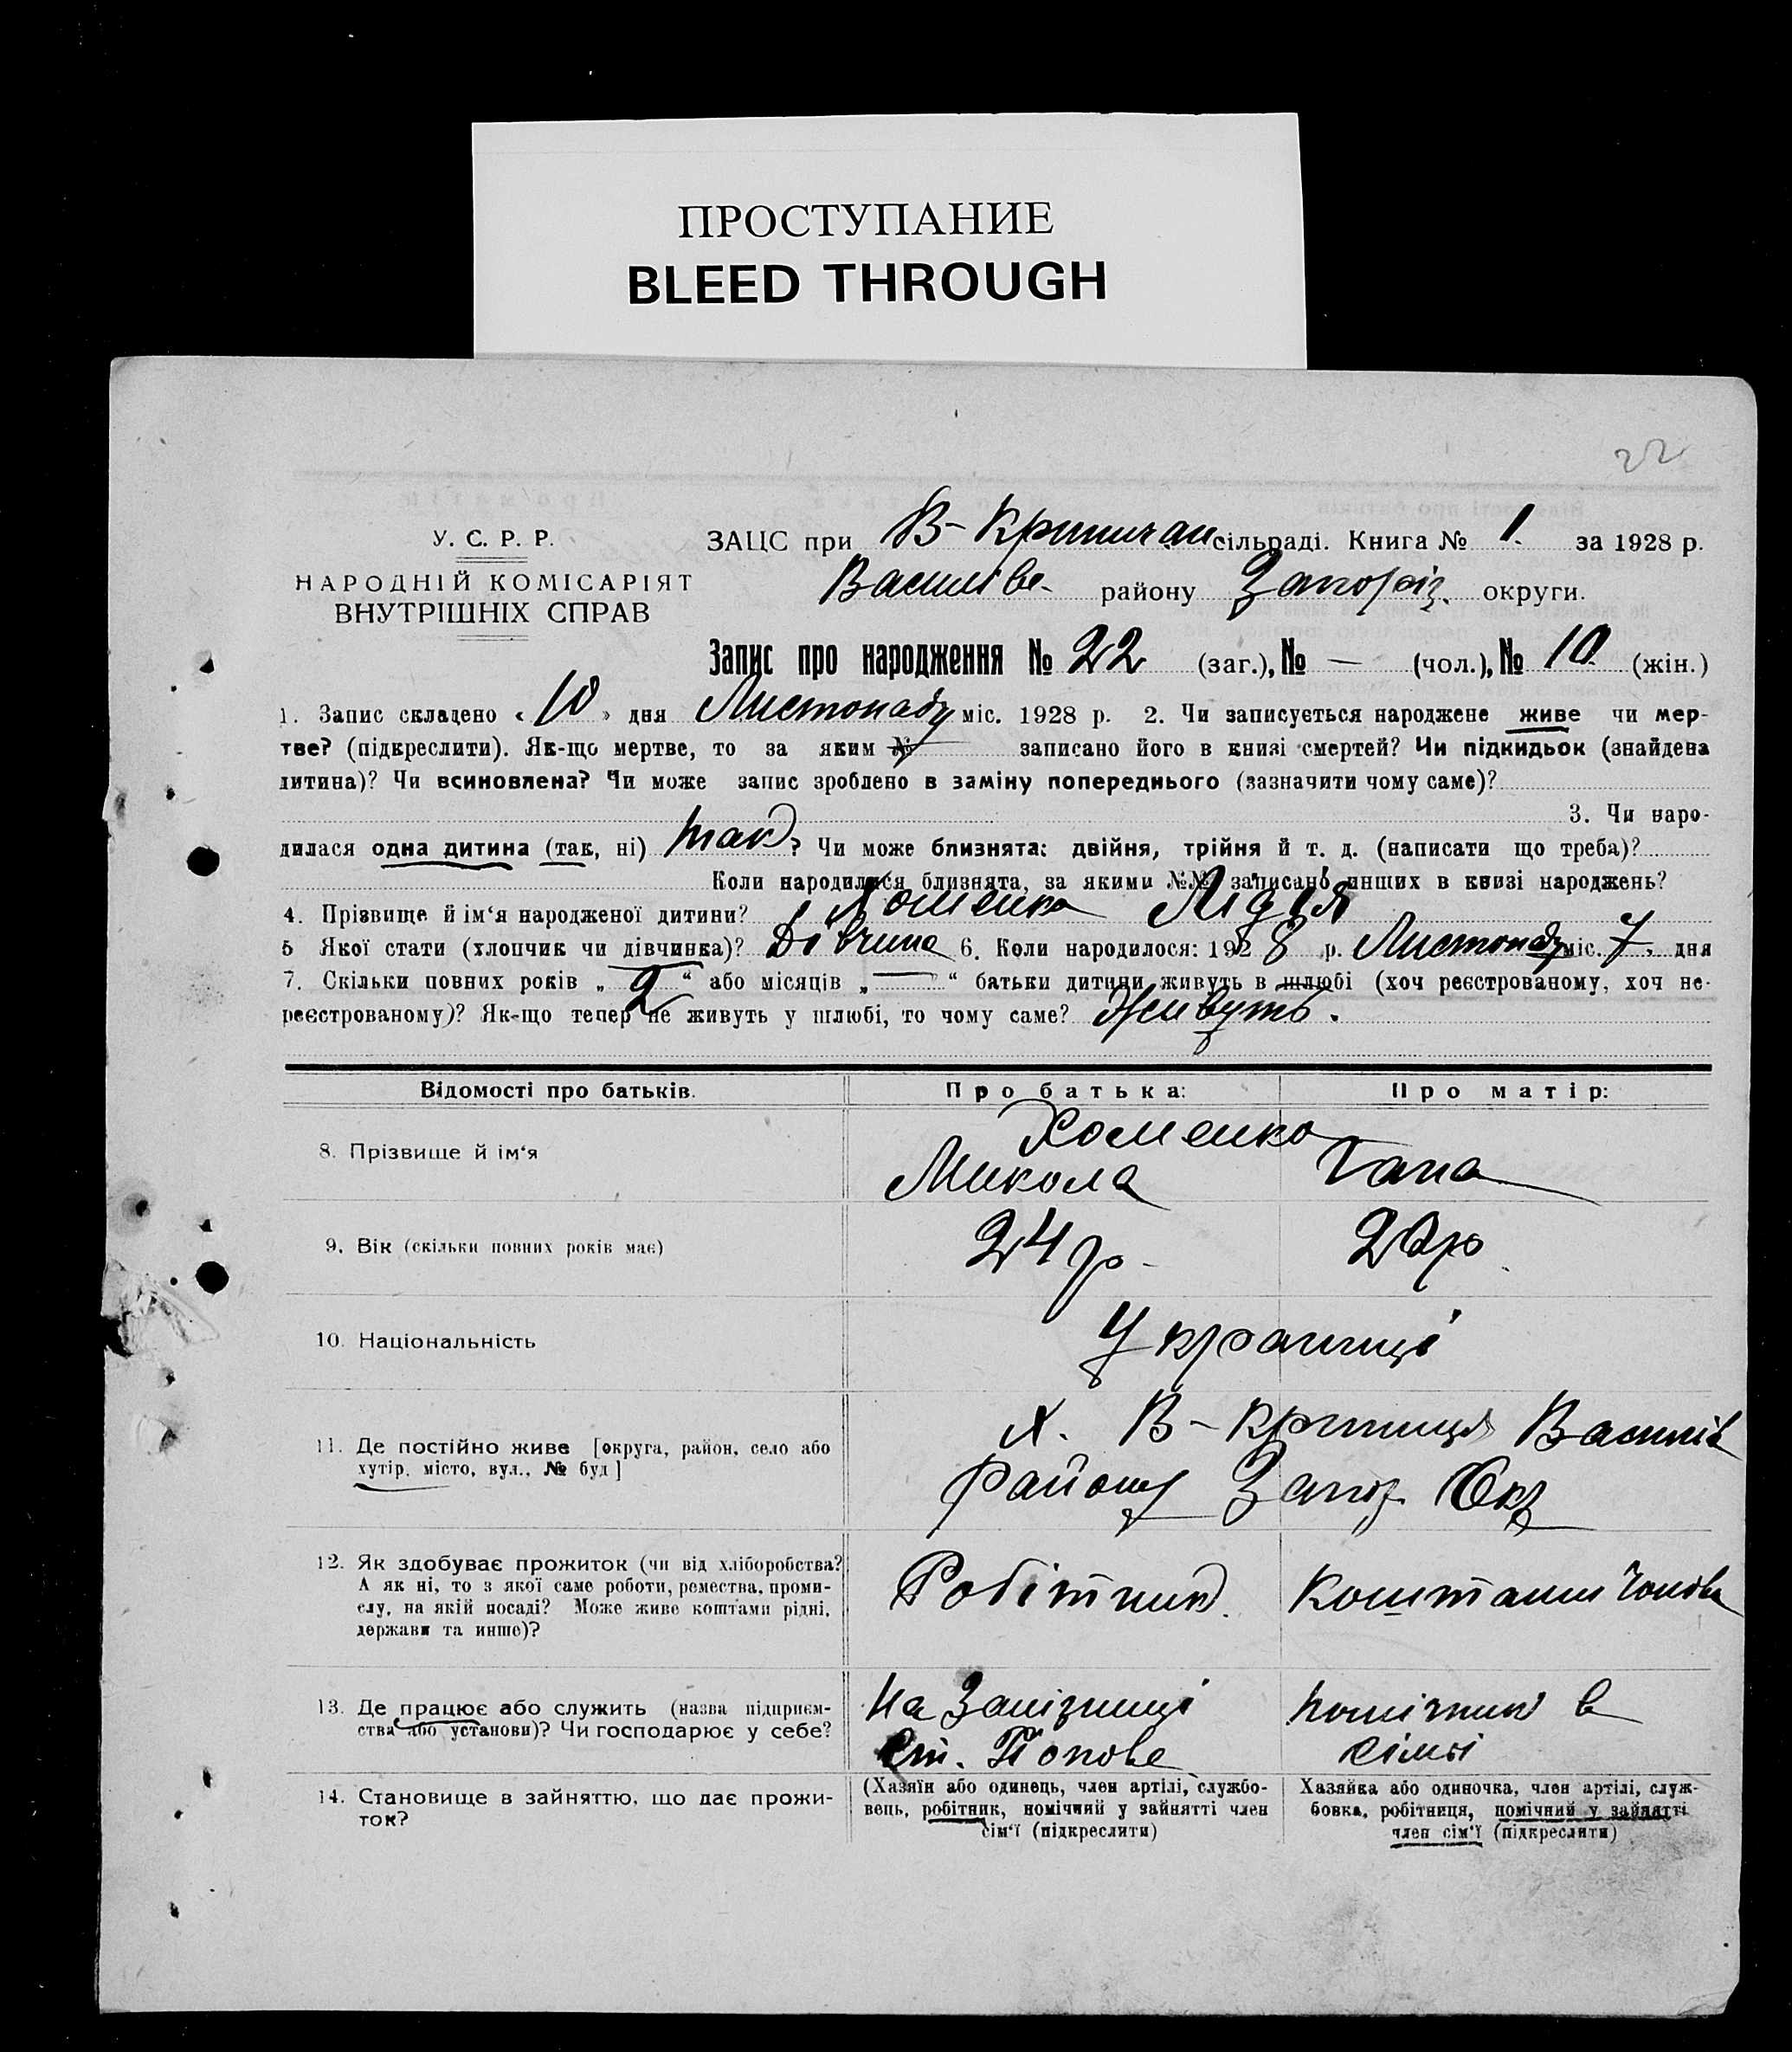 ПРОСТУПАНИЕ
BLEED THROUGH
22
У. С. Р. Р.
НАРОДНІЙ КОМІСАРІЯТ
ВНУТРІШНІХ СПРАВ
ЗАЦС при В-Криничан сільраді. Книга № 1. за 1928 р.
Василівс. району Запоріз. округи.
Запис про народження № 22 (заг.), № — (чол.), № 10 (жін.)
1. Запис складено « 10 » дня Листопаду міс. 1928 р. 2. Чи записується народжене живе чи мер-
тве? (підкреслити). Як-що мертве, то за яким № записано його в книзі смертей? Чи підкидьок (знайдена
дитина)? Чи всиновлена? Чи може запис зроблено в заміну попереднього (зазначити чому саме)?
3. Чи наро-
дилася одна дитина (так, ні) так? Чи може близнята: двійня, трійня й т. д. (написати що треба)?
Коли народилися близнята, за якими №№ записано инших в книзі народжень?
4. Прізвище й ім'я народженої дитини? Хоменко Лідія
5 Якої стати (хлопчик чи дівчинка)? Дівчина 6. Коли народилося: 1928 р. Листопаду міс. 7. дня
7. Скільки повних років „ 2 “ або місяців „ — “ батьки дитини живуть в шлюбі (хоч реєстрованому, хоч не-
реєстрованому)? Як-що тепер не живуть у шлюбі, то чому саме? Живуть.
Відомості про батьків. Про батька: Про матір:
8. Прізвище й ім'я Хоменко
Микола Гана
9. Вік (скільки повних років має) 24 р. 20 р.
10. Національність Українці
11. Де постійно живе [округа, район, село або
хутір, місто, вул., № буд]
х. В-Криниця Василів
району Запор. Окр
12. Як здобуває прожиток (чи від хліборобства?
А як ні, то з якої саме роботи, ремества, проми-
слу, на якій посаді? Може живе коштами рідні,
держави та инше)?
Робітник. Коштами
13. Де працює або служить (назва підприєм-
ства або установи)? Чи господарює у себе?
На Залізниці
ст. Попове
помічник в
сімьї
14. Становище в зайняттю, що дає прожи-
ток?
(Хазяїн або одинець, член артілі, службо-
вець, робітник, помічний у зайнятті член
сім'ї (підкреслити)
Хазяйка або одиночка, член артілі, служ-
бовка, робітниця, помічний у зайнятті
член сім'ї (підкреслити)